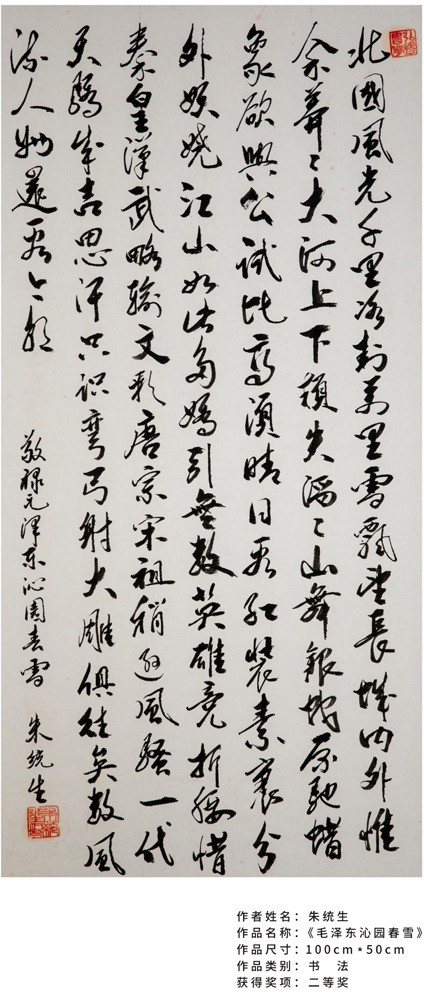 北國風光千里冰封萬里雪飄望長城内外惟
余莽〻大河上下頓失滔〻山舞銀蛇原馳蜡
象欲與公試比高須晴日看紅裝素裹分
外妖嬈江山如此多嬌引無數英雄竞折腰惜
秦皇漢武略輸文彩唐宗宋祖稍逊風騷一代
天驕成吉思汗只识彎弓射大雕俱往矣數風
流人物還看今朝
敬禄毛泽东沁園春雪 朱统生
作者姓名：朱统生
作品名称：《毛泽东沁园春雪》
作品尺寸：100cm*50cm
作品类别：书 法
获得奖项：二等奖